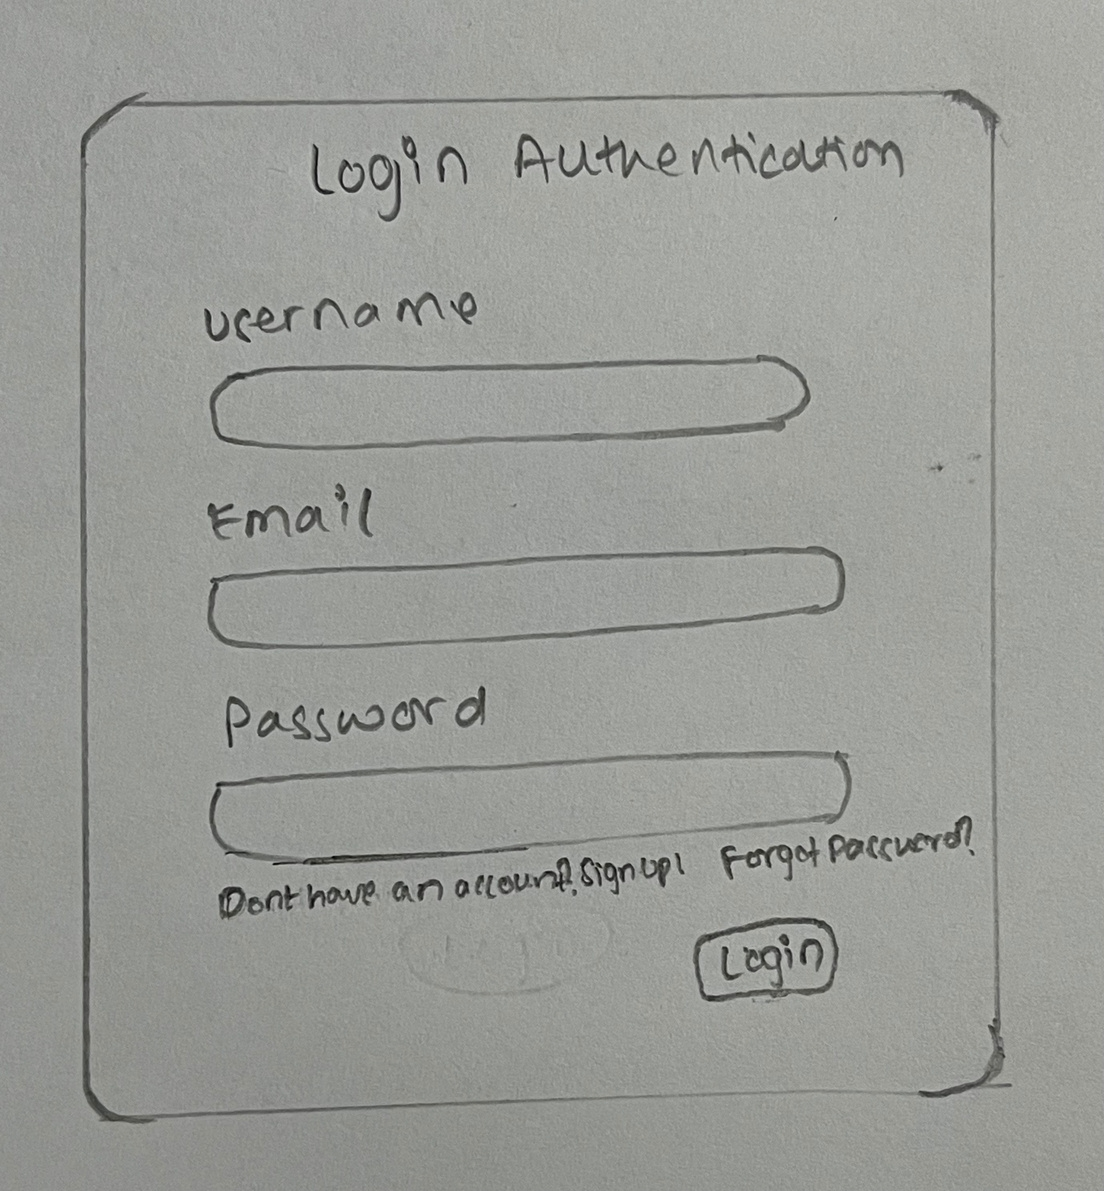 Login Authentication
username
Email
Password
Dont have an account?, Sign Up! Forgot Password?
Login